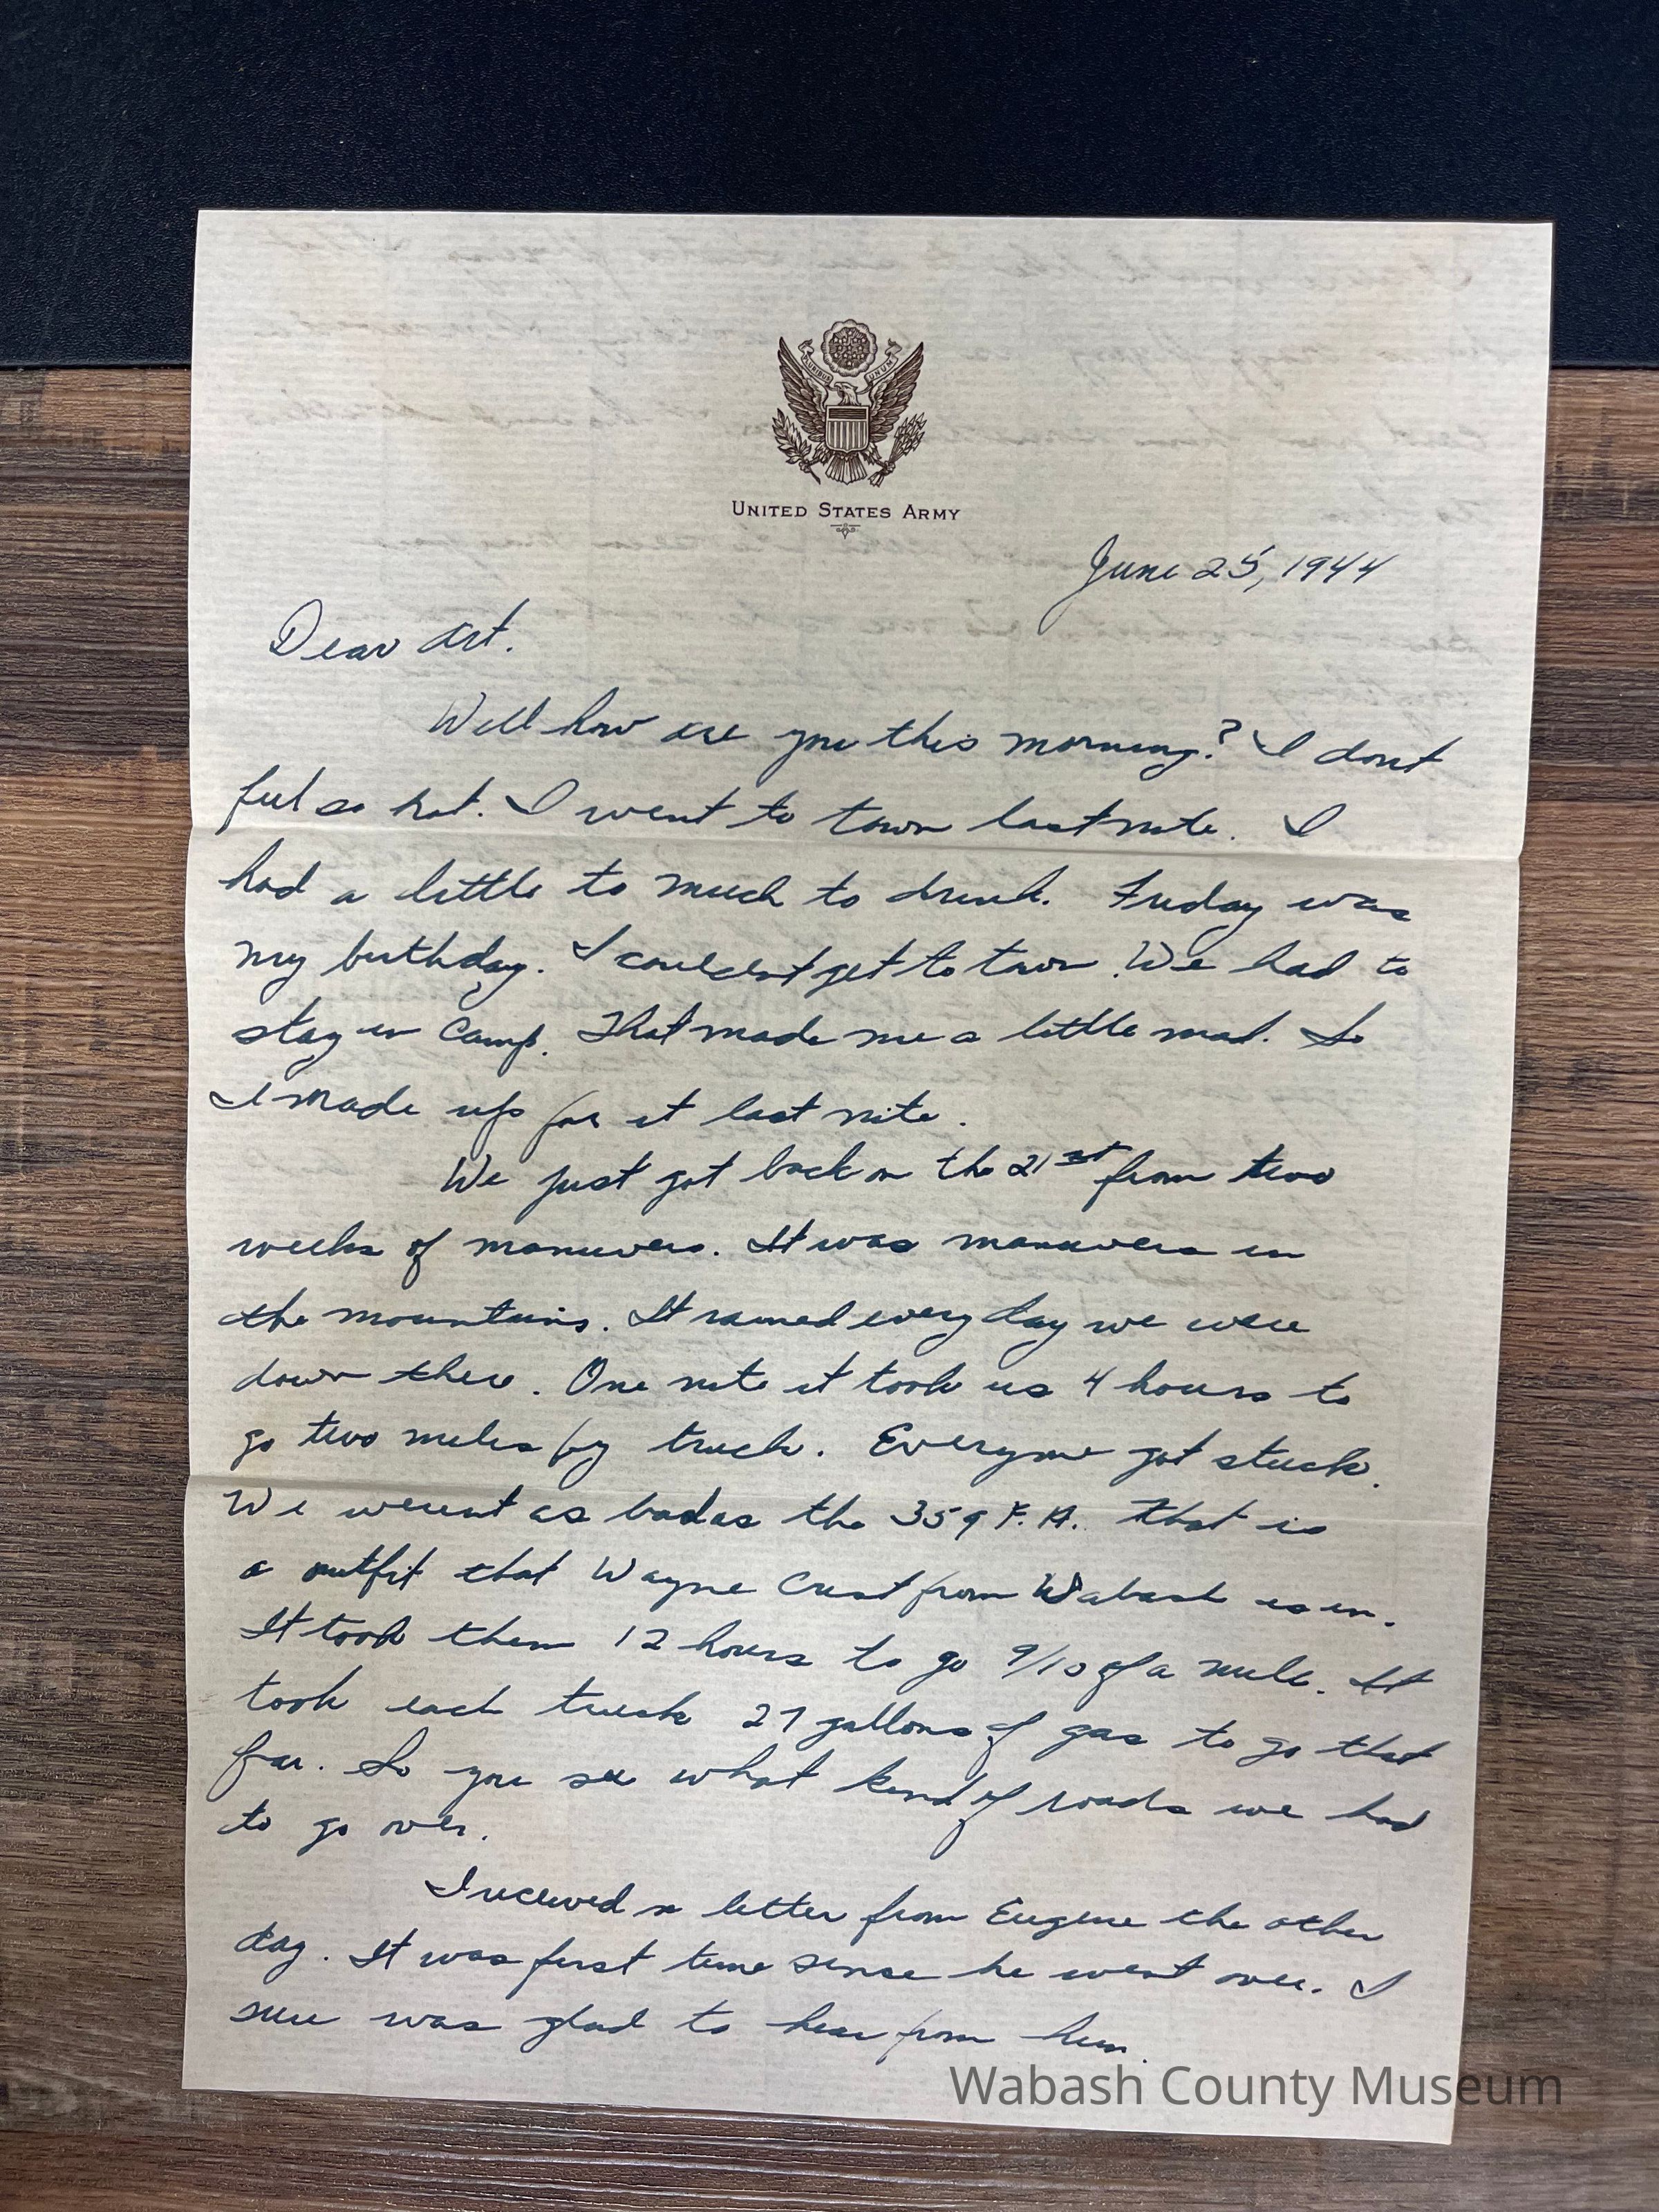 E PLURIBUS UNUM
UNITED STATES ARMY
June 25, 1944
Dear Art.
Well how are you this morning? I dont
feel so hot. I went to town last nite. I
had a little to much to drink. Friday was
my birthday. I couldnt get to town. We had to
stay in Camp. That made me a little mad. So
I made up for it last nite.
We just got back on the 21st from two
weeks of manuvers. It was manuvers in
the mountains. It rained every day we were
down there. One nite it took us 4 hours to
go two miles by truck. Everyone got stuck.
We werent as bad as the 359 F.A. That is
a outfit that Wayne from Wabash is in.
It took them 12 hours to go 9/10 of a mile. It
took each truck 27 gallons of gas to go that
far. So you see what kind of roads we had
to go over.
I received a letter from Eugene the other
day. It was first time sense he went over. I
sure was glad to hear from him.
Wabash County Museum